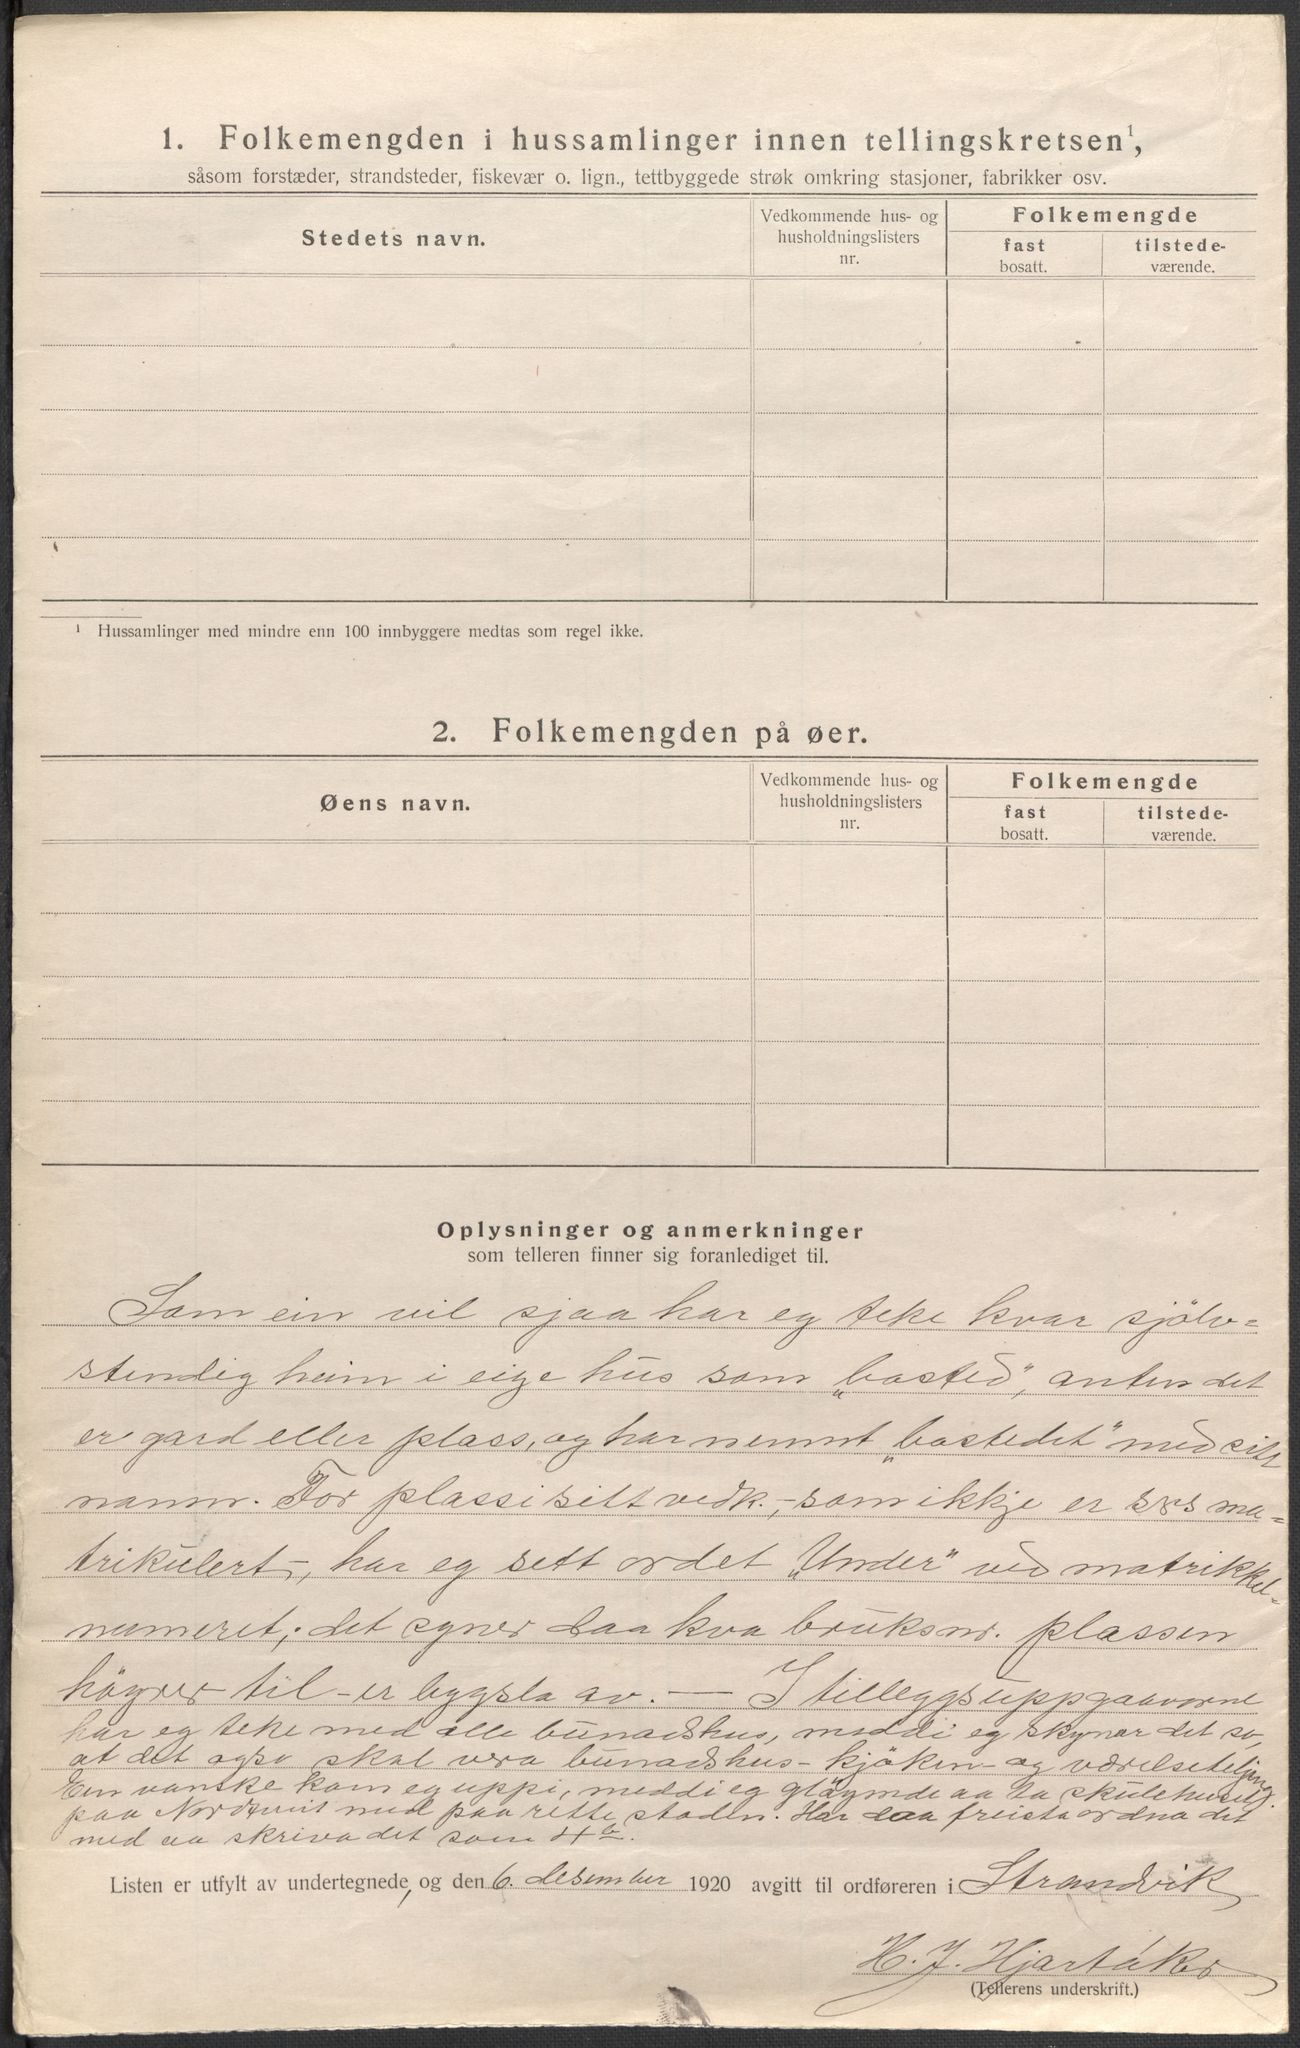 1. Folkemengden i hussamlinger innen tellingskretsen¹,
såsom forstæder, strandsteder, fiskevær o. lign., tettbyggede strøk omkring stasjoner, fabrikker osv.
Stedets navn.
Vedkommende hus- og
husholdningslisters
nr.
Folkemengde
fast
bosatt.
tilstede-
værende.
¹ Hussamlinger med mindre enn 100 innbyggere medtas som regel ikke.
2. Folkemengden på øer.
Øens navn.
Vedkommende hus- og
husholdningslisters
nr.
Folkemengde
fast
bosatt.
tilstede-
værende.
Oplysninger og anmerkninger
som telleren finner sig foranlediget til.
Som ein vil sjaa har eg teke kvar sjölv=
stendig heim i eige hus som „bosted", anten det
er gard eller plass, og har nemnt „bostedet" med sitt
namn. For plassi sitt vedk.,- som ikkje er sers ma=
trikulert -, har eg sett ordet „Under" ved matrikkel-
numeret; det syner daa kva bruksnr. plassen
höyrer til - er bygsla av. — I tilleggsuppgaavorne
har eg teke med alle bunadshus, meddi eg skynar det so,
at det ogso skal vera bunadshus- kjöken- og værelseteljing.
Ein vanske kom eg uppi, meddi eg glöymde aa ta skulehuset
paa Nordtveit med paa rette staden. Har daa freista ordna det
med aa skriva det som 4b.
Listen er utfylt av undertegnede, og den 6. desember 1920 avgitt til ordføreren i Strandvik
H. J. Hjartåker
(Tellerens underskrift.)